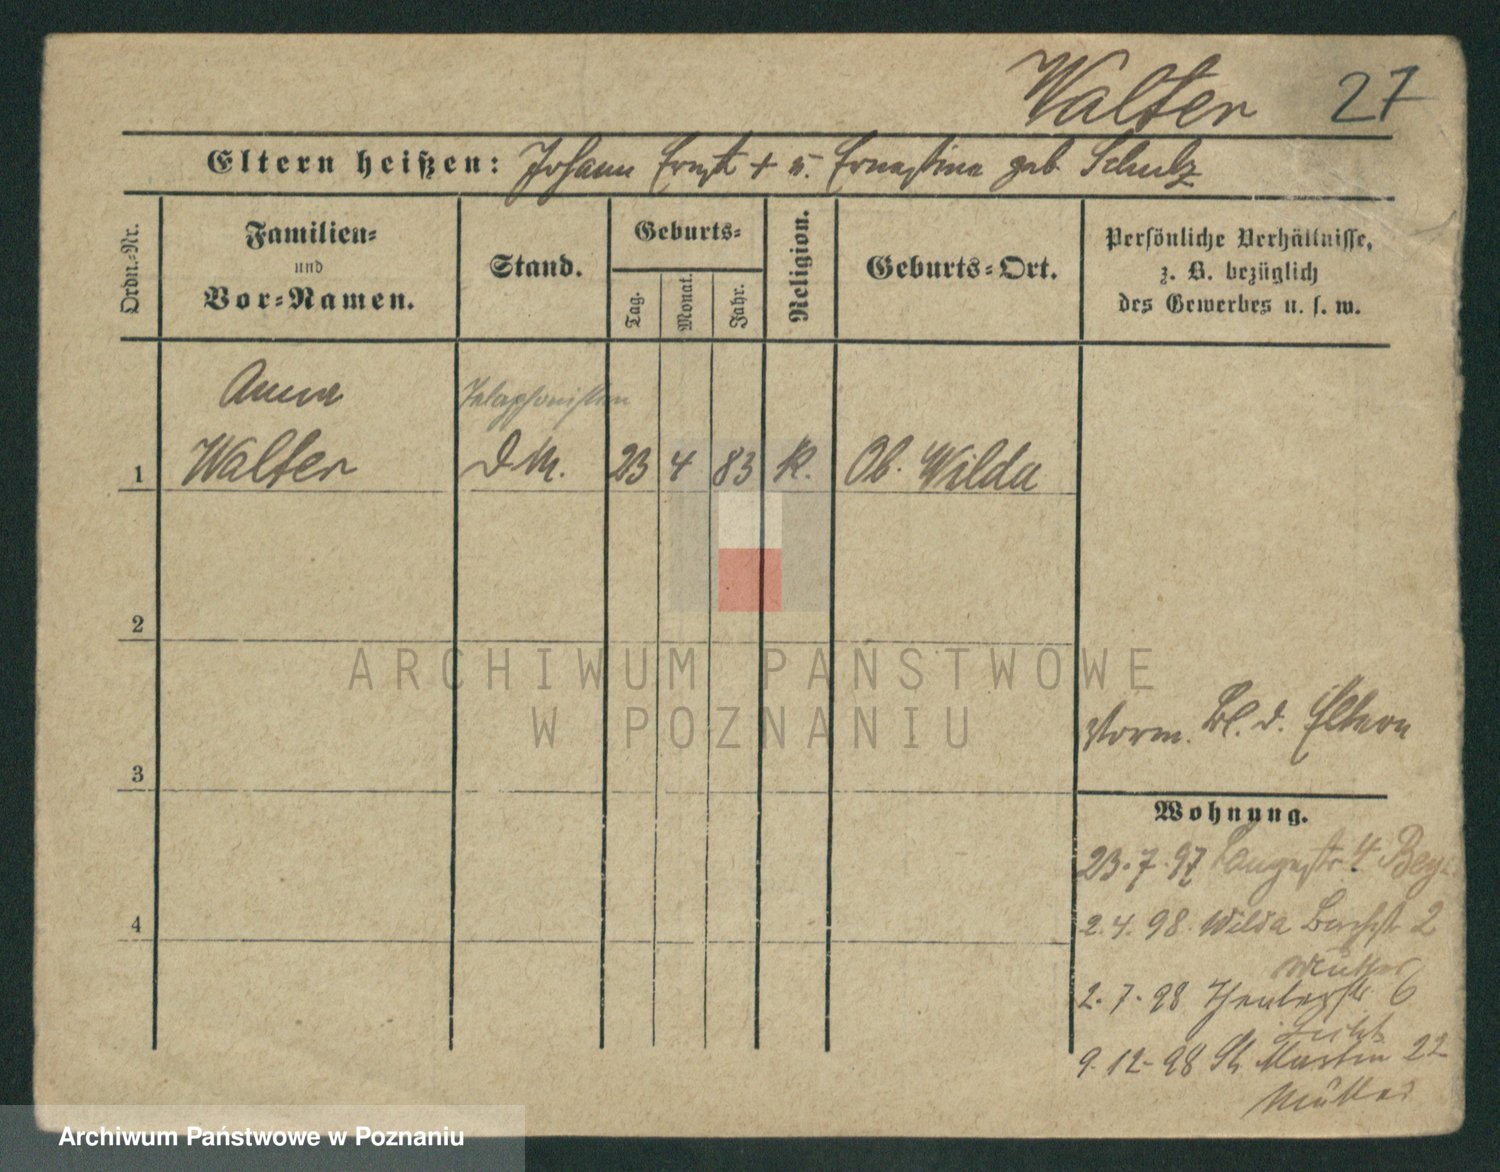 Walter 27
Eltern heißen: Johann Ernst + u. Ernestine geb. Schulz
Ordn.-Nr.
Familien-
und
Vor-Namen.
Stand.
Geburts-
Tag.
Monat.
Jahr.
Religion.
Geburts-Ort.
Persönliche Verhältnisse,
z. B. bezüglich
des Gewerbes u. s. w.
Anna Telephonistin
1 Walter D.M. 23 4 83 K. Ob. Wilda
2
ARCHIWUM PAŃSTWOWE
W POZNANIU
vorm. Bl. d. Eltern
3
Wohnung.
23.7.97 Langestr. 4
2.4.98 Wilda Bachstr 2
4
Mutter
2.7.98 6
9.12.98 St. Martin 22
Mutter
Archiwum Państwowe w Poznaniu